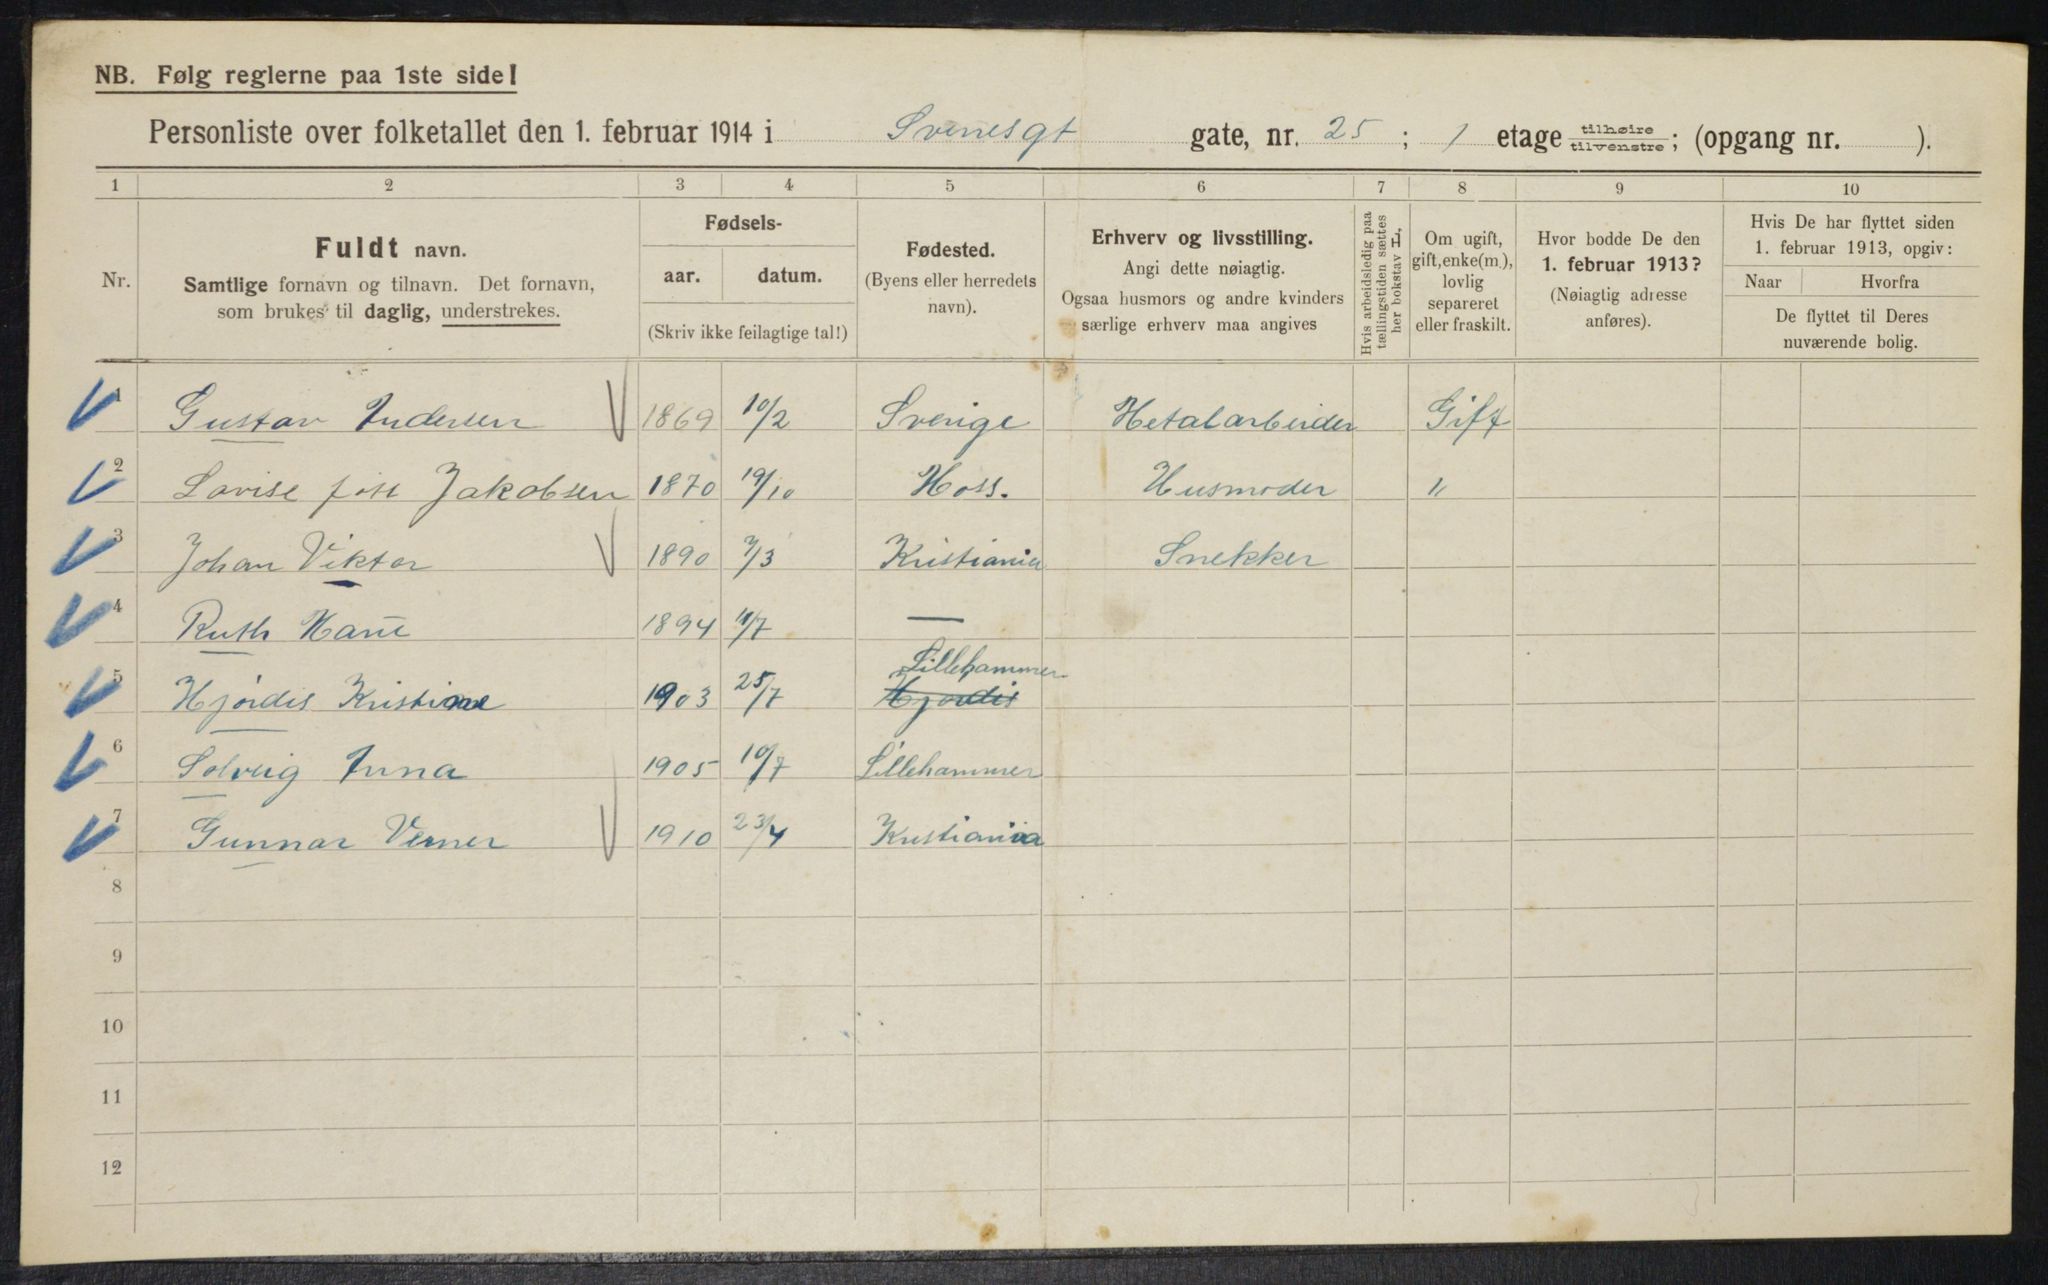 NB. Følg reglerne paa 1ste side!
Personliste over folketallet den 1. februar 1914 i Svenesgt gate, nr. 25; 1 etage tilhøire/tilvenstre; (opgang nr. ).
1 2 3 4 5 6 7 8 9 10
Nr.
Fuldt navn.
Samtlige fornavn og tilnavn. Det fornavn,
som brukes til daglig, understrekes.
Fødsels-
aar. datum.
(Skriv ikke feilagtige tal!)
Fødested.
(Byens eller herredets
navn).
Erhverv og livsstilling.
Angi dette nøiagtig.
Ogsaa husmors og andre kvinders
særlige erhverv maa angives
Hvis arbeidsledig paa
tællingstiden sættes
her bokstav L,
Om ugift,
gift, enke(m.),
lovlig
separeret
eller fraskilt.
Hvor bodde De den
1. februar 1913?
(Nøiagtig adresse
anføres).
Hvis De har flyttet siden
1. februar 1913, opgiv:
Naar Hvorfra
De flyttet til Deres
nuværende bolig.
1 Gustav Andersen 1869 10/2 Sverige Metalarbeider Gift
2 Lovise født Jakobsen 1870 19/10 Moss. Husmoder "
3 Johan Viktor 1890 7/3 Kristiania Snekker
4 Ruth Marie 1894 11/7 —
Lillehammer
5 Hjørdis Kristine 1903 25/7 Hjørdis
6 Solveig Anna 1905 10/7 Lillehammer
7 Gunnar Verner 1910 23/4 Kristiania
8
9
10
11
12